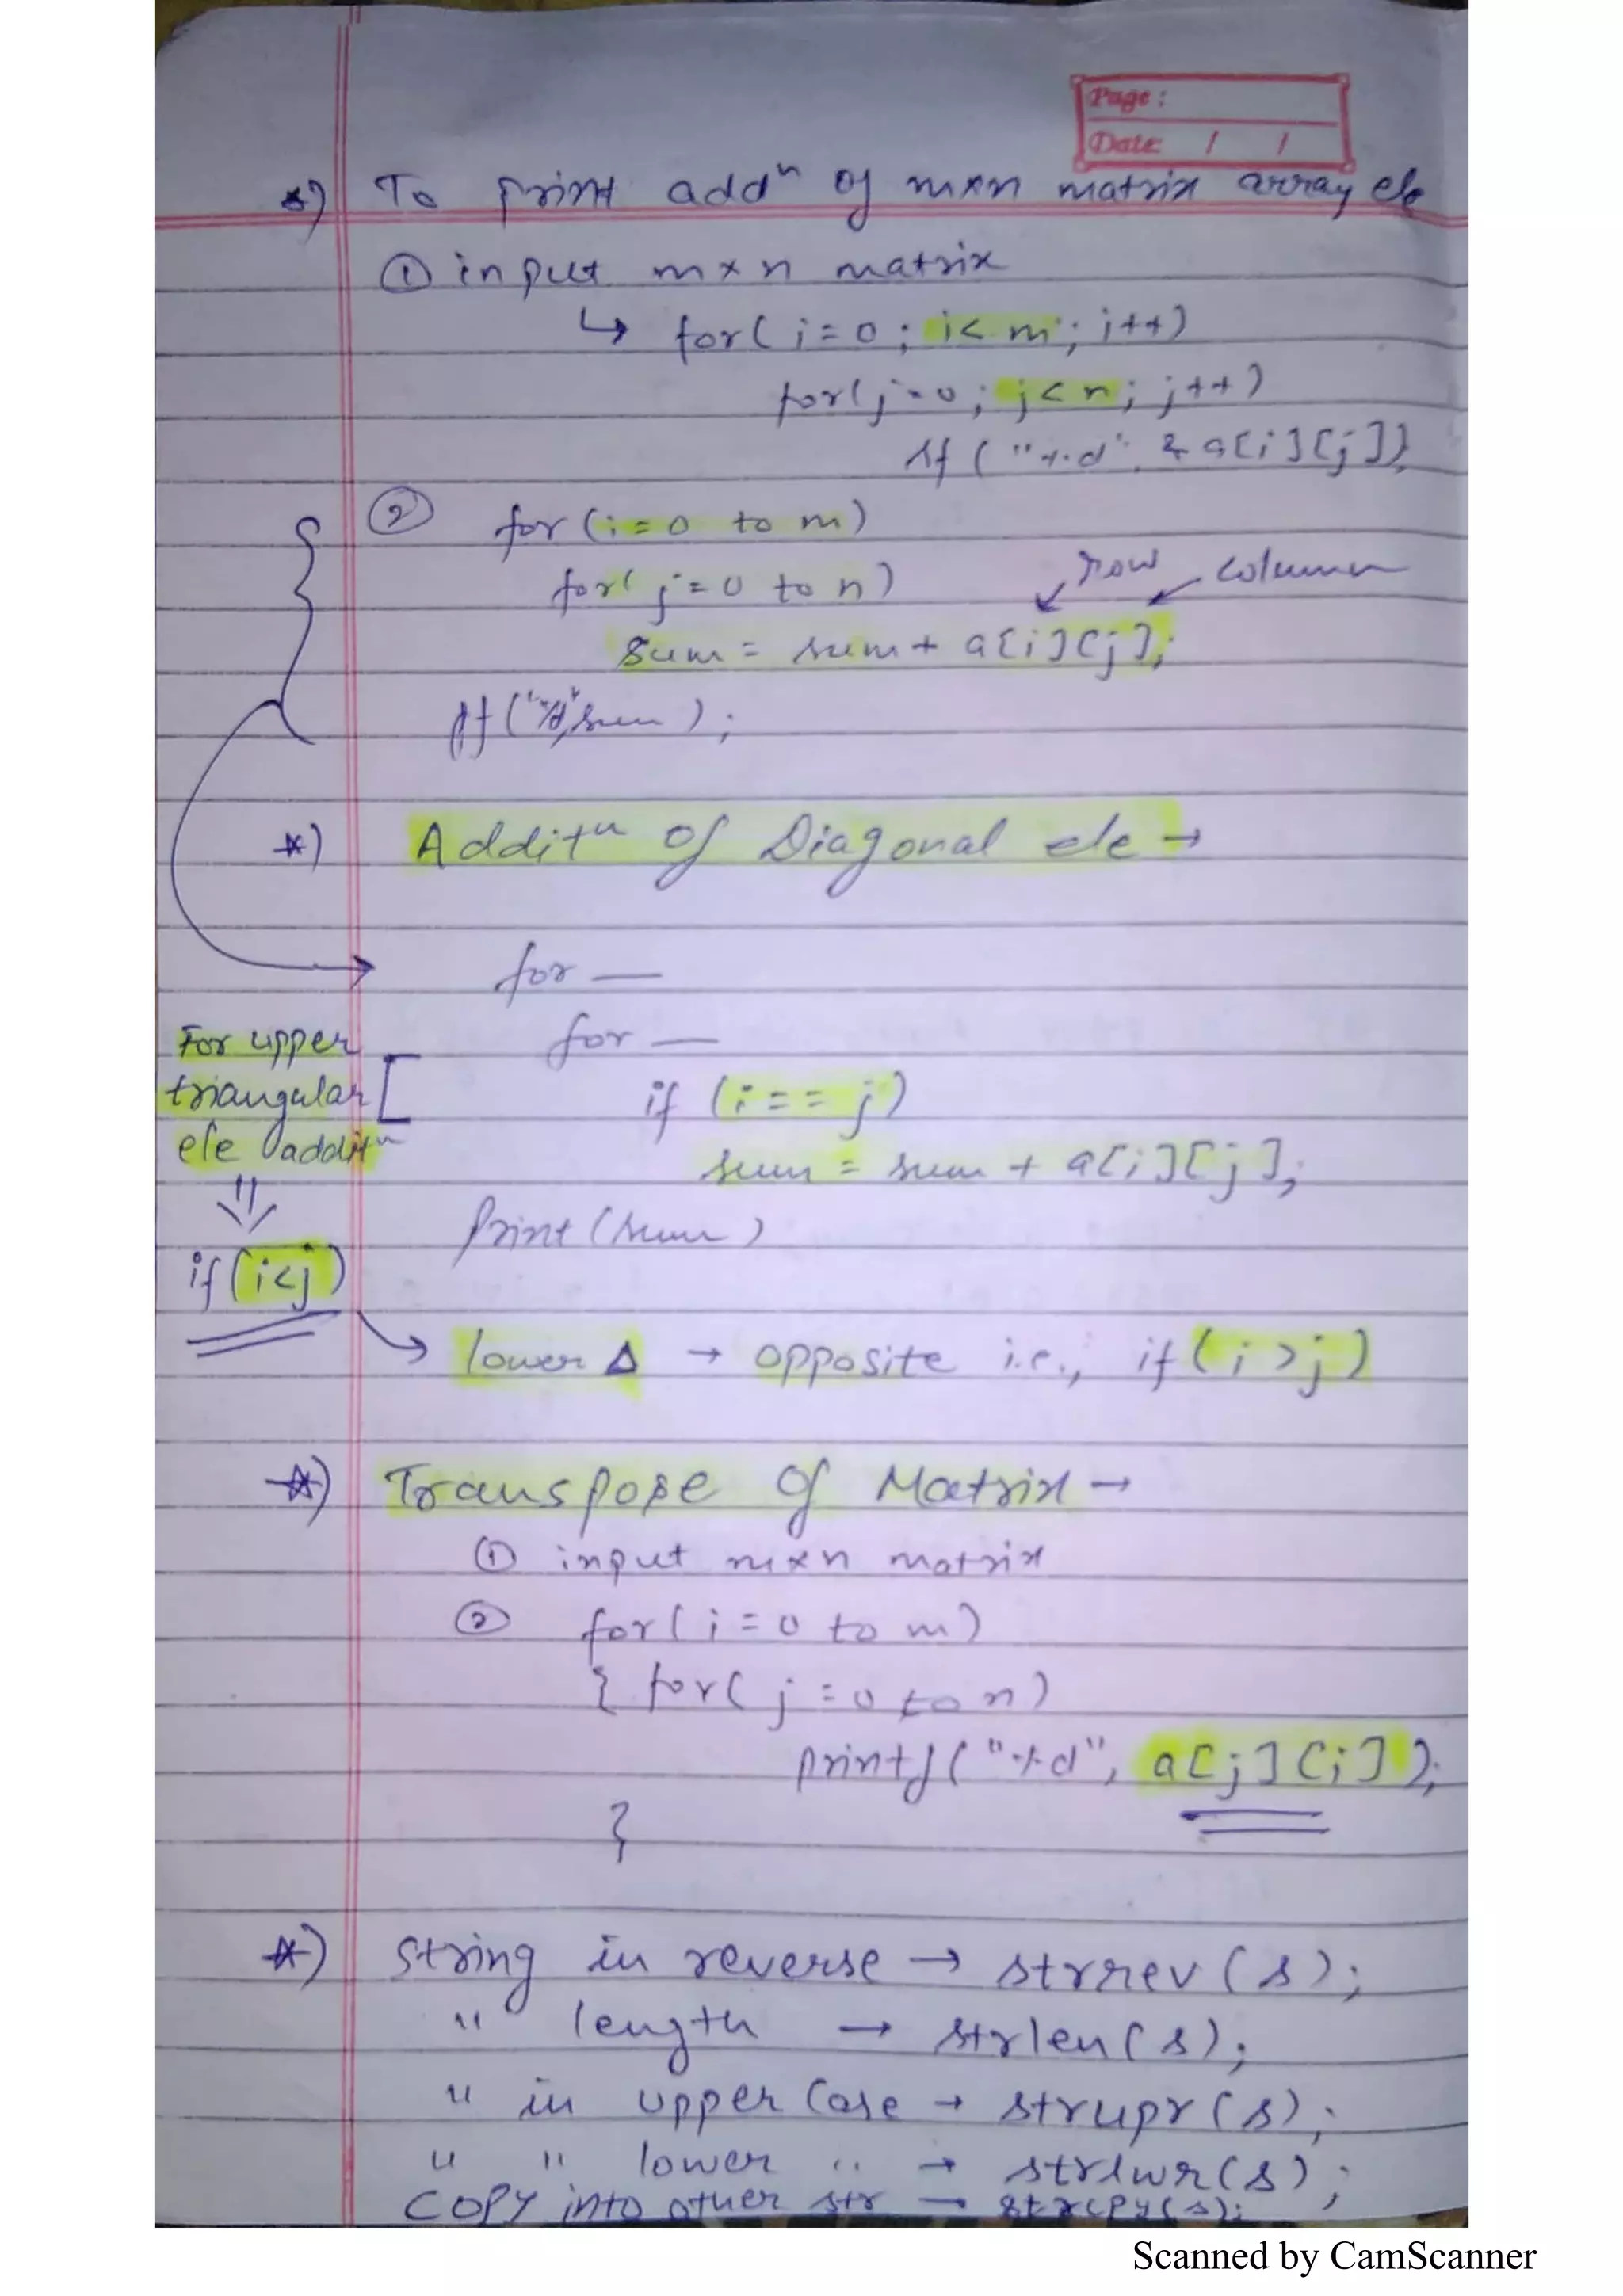 Page :
Date / /
*) To print addⁿ of m×n matrix array ele
① input m × n matrix
↳ for( i = 0 ; i < m ; i++)
for( j = 0 ; j < n ; j++)
sf ( "%d", & a[i][j]);
② for ( i = 0 to m )
for( j = 0 to n )
row column
sum = sum + a[i][j];
pf("%d",sum ) ;
*) Additⁿ of Diagonal ele →
for —
for —
For upper
triangular
ele additⁿ
⇓
if ( i<j )
if ( i == j )
sum = sum + a[i][j];
print ( sum )
lower Δ → opposite i.e., if ( i > j )
*) Transpose of Matrix →
① input m×n matrix
② for( i = 0 to m )
{ for( j = 0 to n )
printf( "%d", a[j][i] );
}
*) String in reverse → strrev ( s ) ;
" length → strlen( s ) ;
" in upper Case → strupr ( s ) ;
" " lower " → strlwr( s ) ;
COPY into other str → strcpy( s );
Scanned by CamScanner